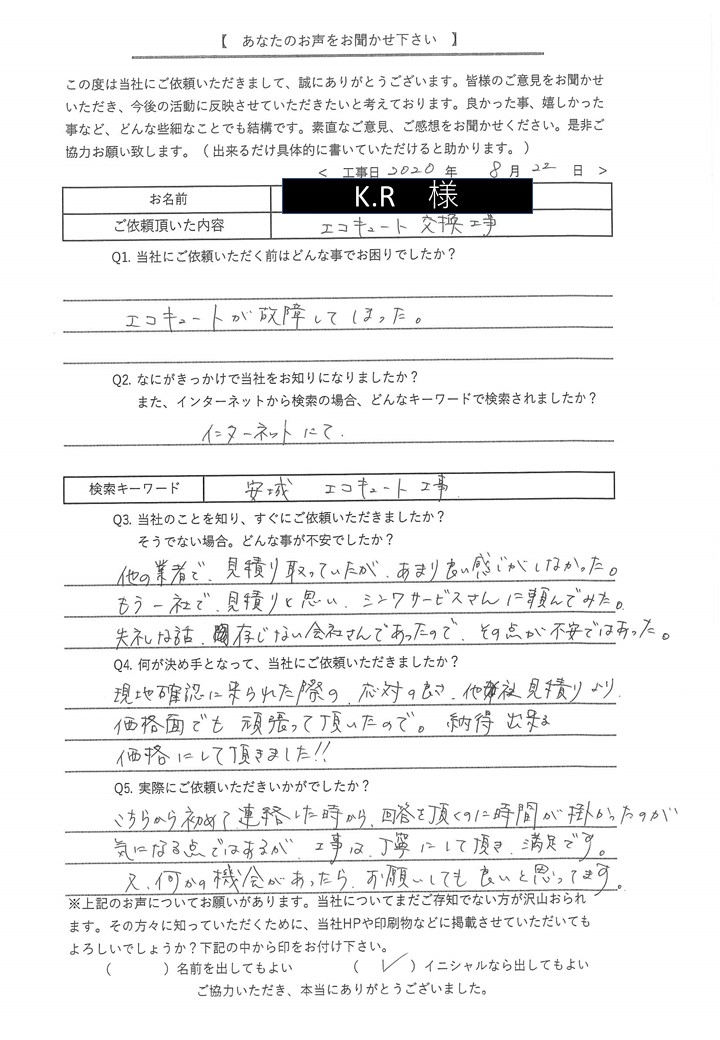 【　あなたのお声をお聞かせ下さい　】
この度は当社にご依頼いただきまして、誠にありがとうございます。皆様のご意見をお聞かせ
いただき、今後の活動に反映させていただきたいと考えております。良かった事、嬉しかった
事など、どんな些細なことでも結構です。素直なご意見、ご感想をお聞かせください。是非ご
協力お願い致します。（出来るだけ具体的に書いていただけると助かります。）
＜　工事日 2020 年　8 月 22 日　＞
お名前　K.R　様
ご依頼頂いた内容　エコキュート 交換工事
Q1. 当社にご依頼いただく前はどんな事でお困りでしたか？
エコキュートが故障してしまった。
Q2. なにがきっかけで当社をお知りになりましたか？
また、インターネットから検索の場合、どんなキーワードで検索されましたか？
インターネットにて.
検索キーワード　安城　エコキュート 工事
Q3. 当社のことを知り、すぐにご依頼いただきましたか？
そうでない場合。どんな事が不安でしたか？
他の業者で、見積り取っていたが、あまり良い感じがしなかった。
もう一社で、見積りと思い、シンワサービスさんに頼んでみた。
失礼な話、存じない会社さんであったので、その点が不安ではあった。
Q4. 何が決め手となって、当社にご依頼いただきましたか？
現地確認に来られた際の、応対の良さ、他社見積りより、
価格面でも頑張って頂いたので。納得出来る
価格にして頂きました!!
Q5. 実際にご依頼いただきいかがでしたか？
こちらから初めて連絡した時から、回答を頂くのに時間が掛かったのが
気になる点ではあるが、工事は、丁寧にして頂き、満足です。
又、何かの機会があったら、お願いしても良いと思ってます。
※上記のお声についてお願いがあります。当社についてまだご存知でない方が沢山おられ
ます。その方々に知っていただくために、当社HPや印刷物などに掲載させていただいても
よろしいでしょうか？下記の中から印をお付け下さい。
（　　　）名前を出してもよい　　（ ✓ ）イニシャルなら出してもよい
ご協力いただき、本当にありがとうございました。